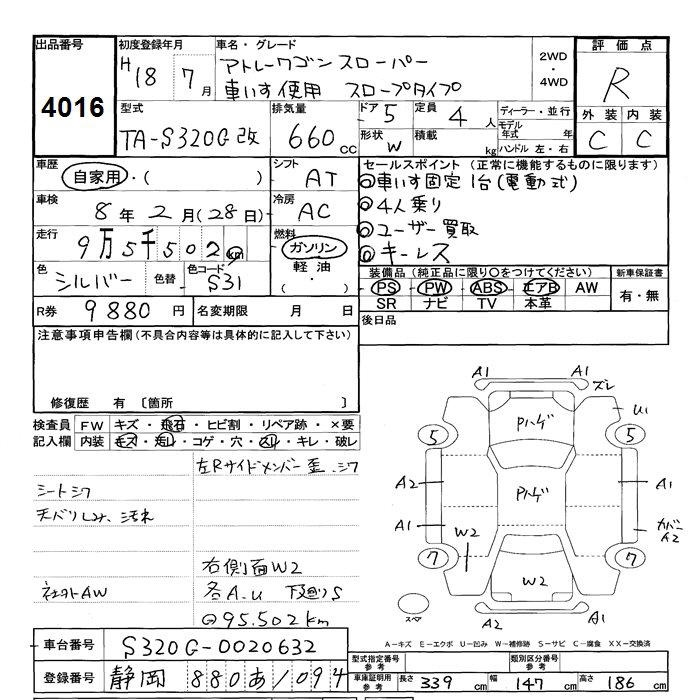 出品番号
4016
初度登録年月
H 18 7月
車名・グレード
アトレーワゴン スローパー
車いす使用 スロープタイプ
2WD
・
4WD
評価点
R
外装 内装
C C
型式
TA-S320G改
排気量
660cc
ドア 5
定員 4人
形状 W
積載 kg
ディーラー・並行
モデル年式 年
ハンドル 左・右
車歴
自家用・( )
シフト
AT
セールスポイント (正常に機能するものに限ります)
◎車いす固定 1台(電動式)
◎4人乗り
◎ユーザー買取
◎キーレス
車検
8年 2月(28日)
冷房
AC
走行
9万5千502km
燃料
ガソリン
軽油
・( )
色
シルバー
色替
色コード
S31
装備品 (純正品に限り○をつけてください)
PS PW ABS エアB AW
SR ナビ TV 本革
新車保証書
有・無
R券 9880円
名変期限 月 日
後日品
注意事項申告欄(不具合内容等は具体的に記入して下さい)
修復歴 有 〔箇所 〕
検査員記入欄
FW キズ・飛石・ヒビ割・リペア跡・×要
内装 キズ・汚れ・コゲ・穴・スレ・キレ・破レ
左Rサイドメンバー歪、シワ
シートシワ
天バリしみ、汚れ
右側面W2
社外AW
各A.U 下廻りS
◎95.502km
A1 A1
ズレ
U1
Pハゲ
5 5
A2 A1
Pハゲ
A1
W2
カバー
A2
7 7
W2
スペア
A2 A1
A-キズ E-エクボ U-凹み W-補修跡 S-サビ C-腐食 XX-交換済
車台番号 S320G-0020632
登録番号 静岡 880あ1094
型式指定番号 参考
類別区分番号 参考
車庫証明用 参考
長さ 339cm
幅 147cm
高さ 186cm